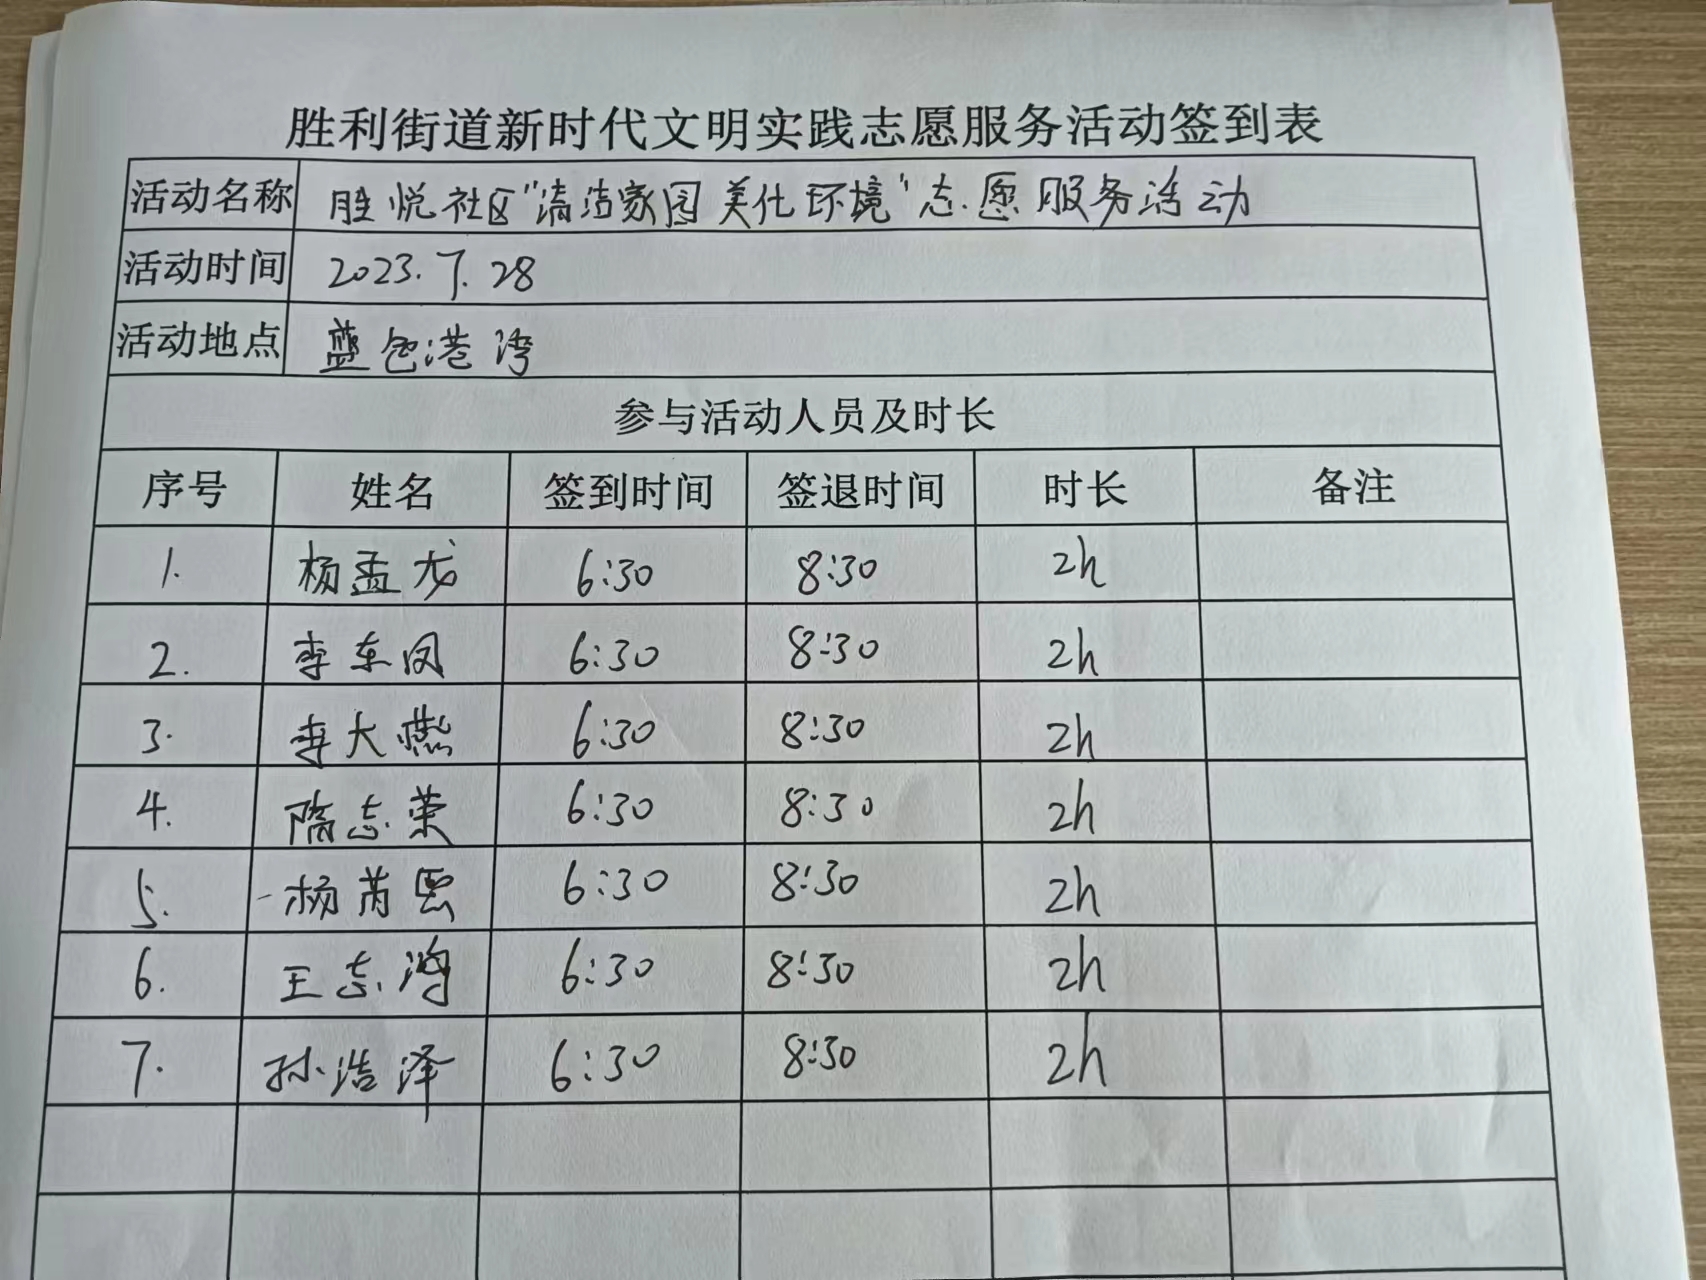 胜利街道新时代文明实践志愿服务活动签到表
活动名称 胜悦社区"清洁家园 美化环境"志愿服务活动
活动时间 2023.7.28
活动地点 蓝色港湾
参与活动人员及时长
序号 姓名 签到时间 签退时间 时长 备注
1. 杨孟龙 6:30 8:30 2h
2. 李东凤 6:30 8:30 2h
3. 李大燕 6:30 8:30 2h
4. 隋志荣 6:30 8:30 2h
5. 杨芮 6:30 8:30 2h
6. 王志鸿 6:30 8:30 2h
7. 孙浩泽 6:30 8:30 2h